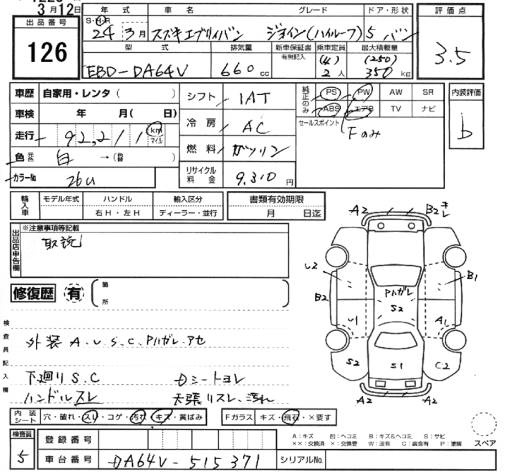 3月12日
出品番号
126
年式 車名 グレード ドア・形状
24年3月 スズキエブリィバン ジョイン(ハイルーフ) 5 バン
型式 排気量 新車保証書 有無記入 乗車定員 最大積載量
EBD-DA64V 660cc (4) 2人 (250) 350kg
評価点
3.5
車歴 自家用・レンタ( )
車検 年 月( 日)
走行 92,211 km マイル
色 白 →
カラーNo 26U
シフト 1AT
冷房 AC
燃料 ガソリン
リサイクル料金 9,310円
純正のみ PS PW AW SR
ABS エアB TV ナビ
セールスポイント
Fのみ
内装評価
b
輸入車 モデル年式 ハンドル 輸入区分
右H・左H ディーラー・並行
書類有効期限
月 日迄
出品店申告欄
※注意事項等記載
取説
修復歴 有 箇所
検査員記入欄
外装 A.U.S.C.Pハガレ.アセ
下廻りS.C Dミートヨレ
ハンドルスレ 天張リスレ、汚れ
内装シート 穴・破れ・スレ・コゲ・汚れ・キズ・黄ばみ
Fガラス キズ・飛石・×要す
検査員
5
登録番号
車台番号 DA64V-515371
シリアルNo.
A2 B2 キレ
U2 B1
B2 A2
Pハガレ
S2
U1 A1
S2 S1 C2
A2 A2
スペア
A:キズ B:キズ&ヘコミ S:サビ
××:交換済 ×:交換要 W:波有 C:腐食有 P:塗装